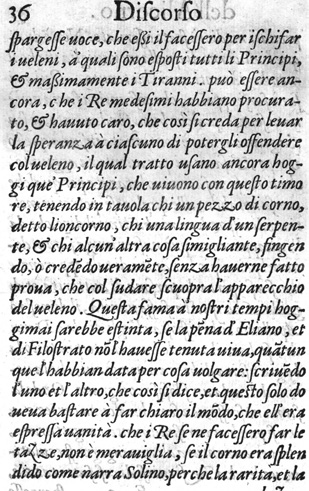 36 Discorso
spargesse voce, che eßi il facessero per ischifar
i veleni, à quali sono esposti tutti li Principi,
& maßimamente i Tiranni. può essere an-
cora, che i Re medesimi habbiano procura-
to, & hauuto caro, che così si creda per leuar
la speranza à ciascuno di potergli offendere
col veleno, il qual tratto usano ancora hog-
gi que' Principi, che uiuono con questo timo
re, tenendo in tauola chi un pezzo di corno,
detto lioncorno, chi una lingua d'un serpen-
te, & chi alcun'altra cosa simigliante, fingen
do, ò credẽdo ueramẽte, senza hauerne fatto
proua, che col sudare scuopra l'apparecchio
del ueleno. Questa fama à nostri tempi hog-
gimai sarebbe estinta, se la pẽna d'Eliano, et
di Filostrato nõ l'hauesse tenuta uiua, quãtun
que l'habbian data per cosa uolgare: scriuẽdo
l'uno et l'altro, che così si dice, et questo solo do
ueua bastare à far chiaro il mõdo, che ell'era
espressa uanità. che i Re se ne facessero far le
tazze, non è merauiglia, se il corno era splen
dido come narra Solino, perche la rarità, et la